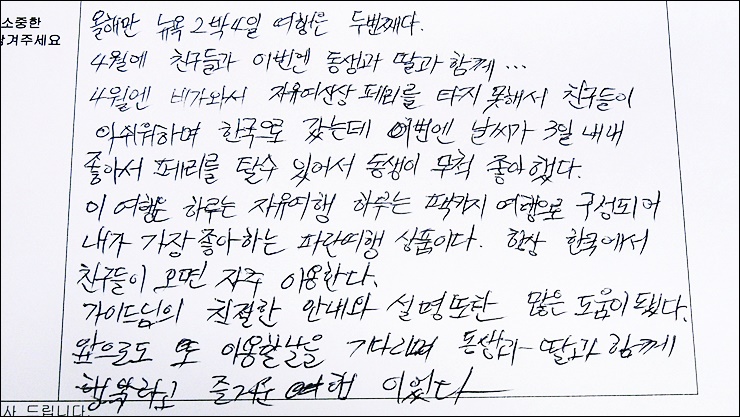 소중한
남겨주세요
올해만 뉴욕 2박4일 여행은 두번째다.
4월에 친구들과 이번엔 동생과 딸과 함께 ...
4월엔 비가와서 자유여신상 페리를 타지 못해서 친구들이
아쉬워하며 한국으로 갔는데 이번엔 날씨가 3일 내내
좋아서 페리를 탈수 있어서 동생이 무척 좋아했다.
이 여행은 하루는 자유여행 하루는 팩카지 여행으로 구성되어
내가 가장 좋아하는 파란여행 상품이다. 항상 한국에서
친구들이 오면 자주 이용한다.
가이드님의 친절한 안내와 설명또한 많은 도움이 됐다.
앞으로도 또 이용할날을 기다리며 동생과 딸과 함께
행복하고 즐거운 여행 이었다
사 드립니다.